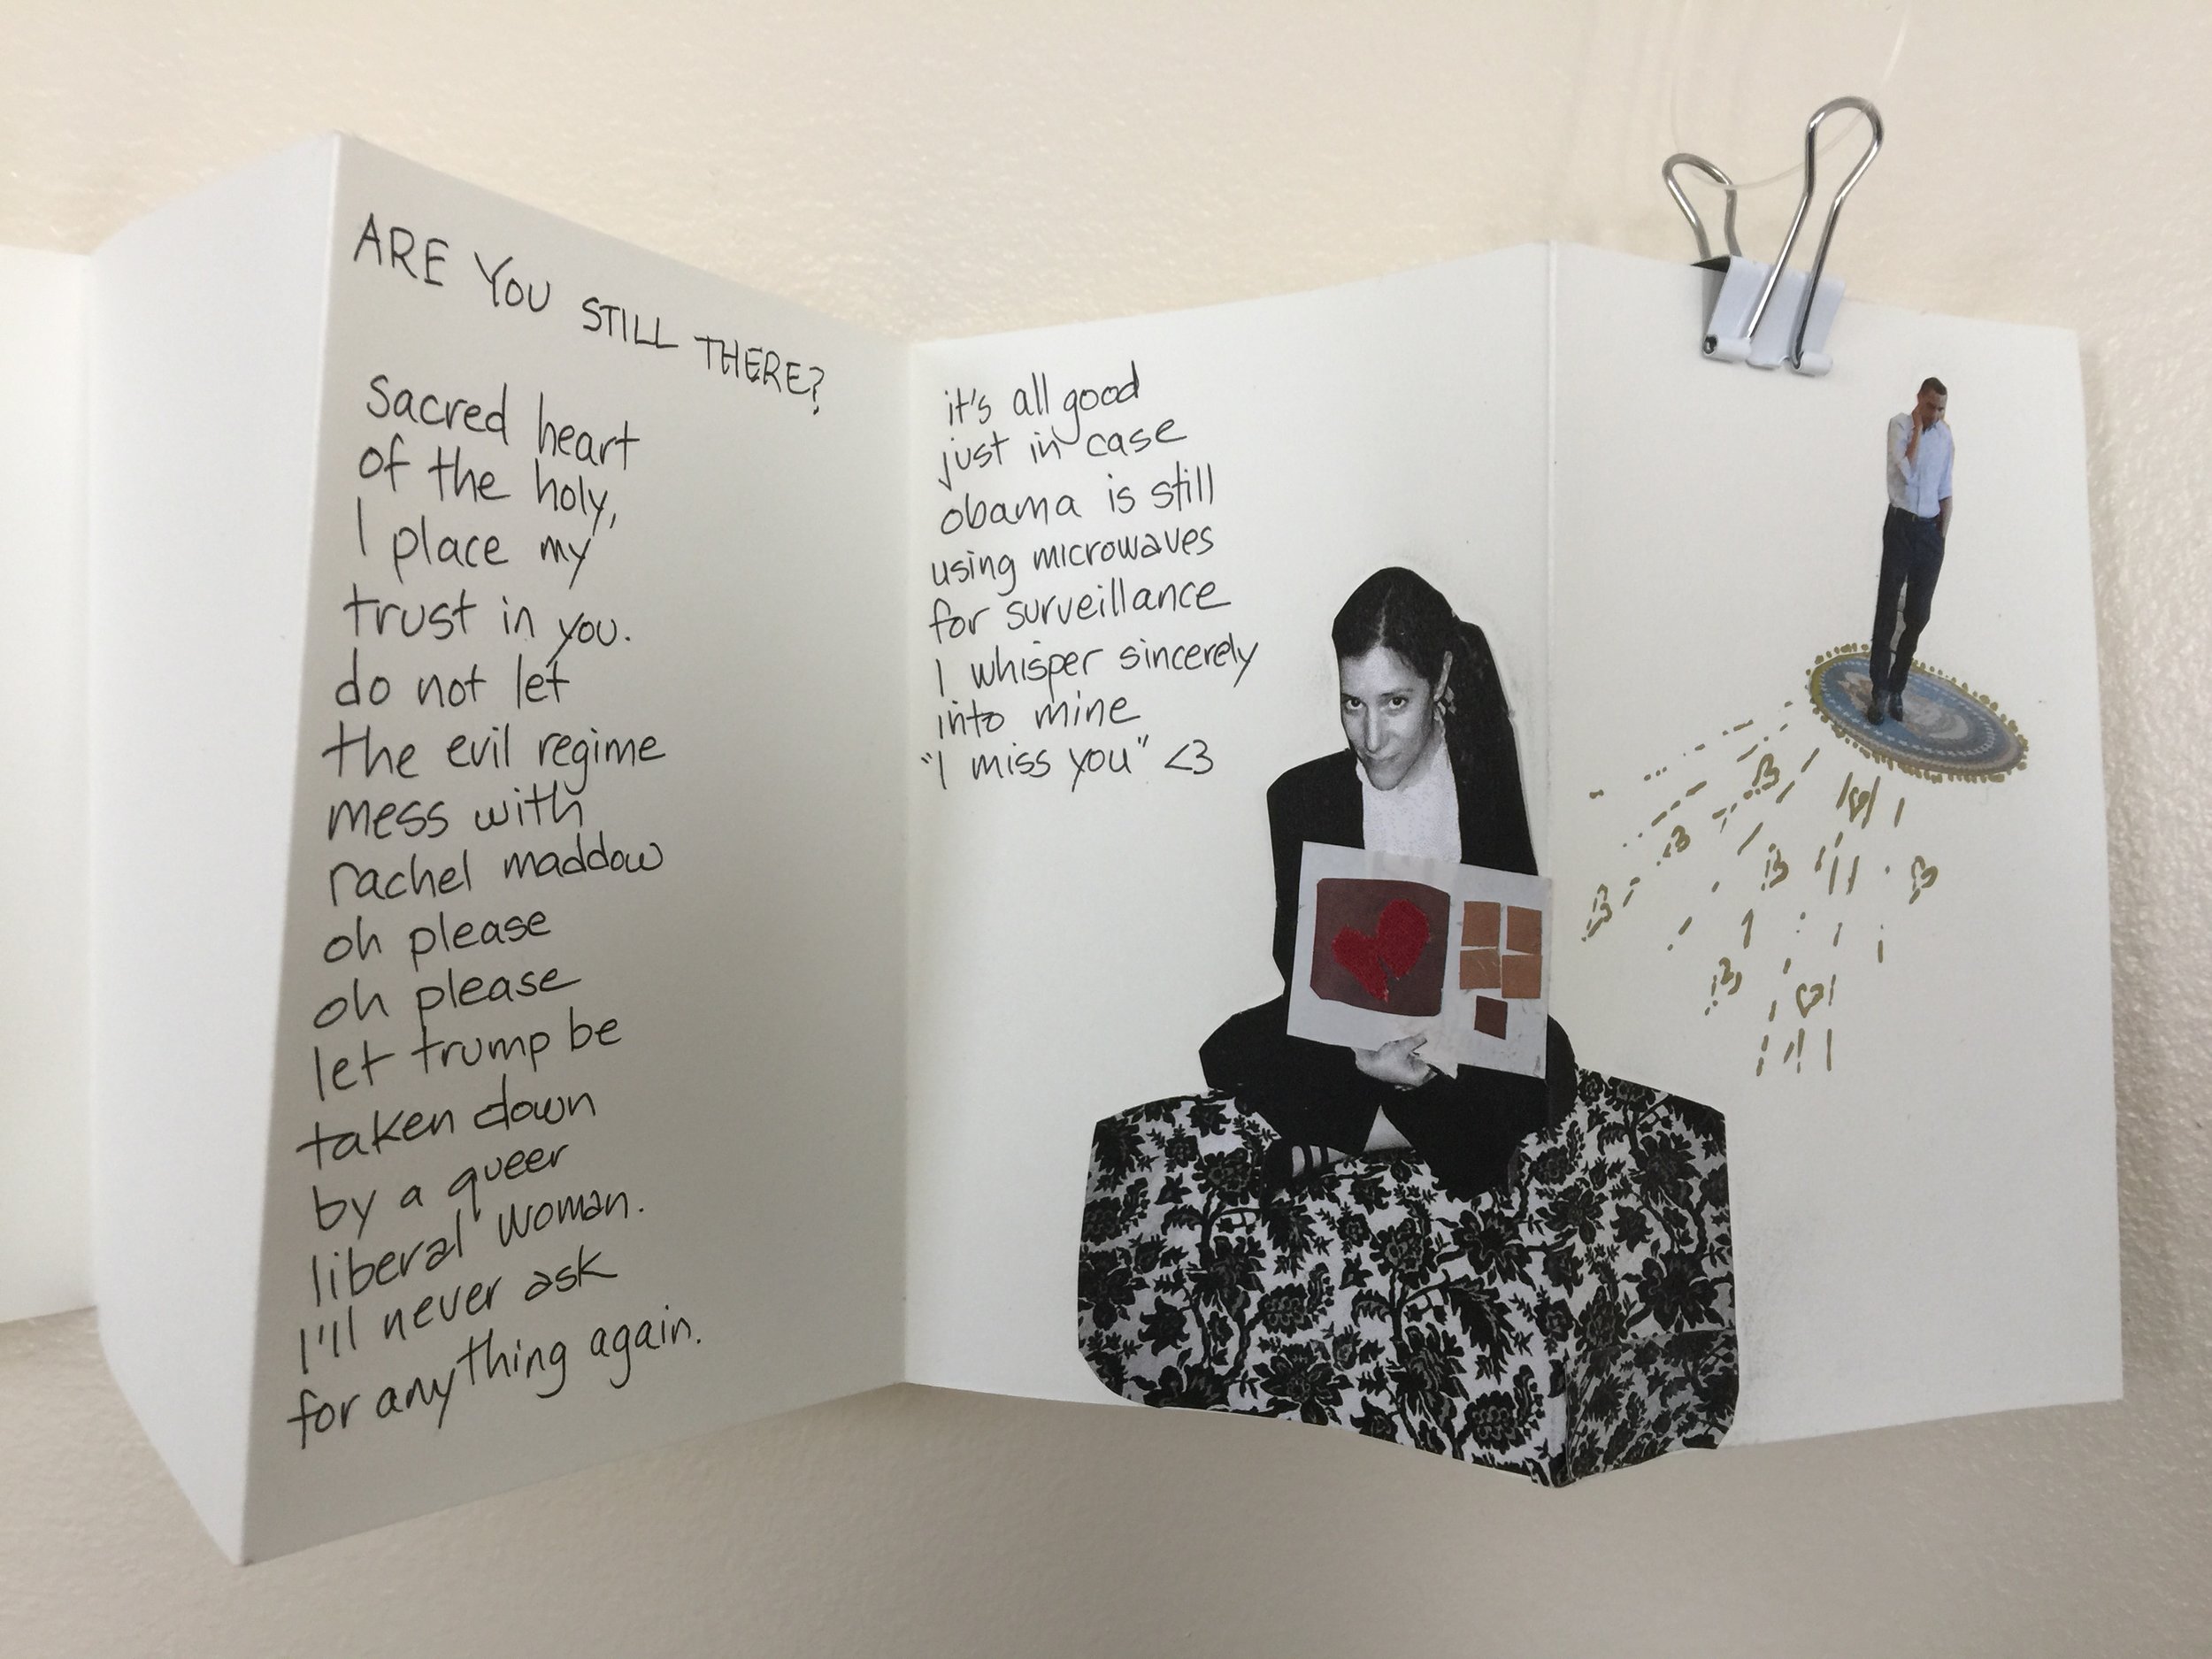 ARE YOU STILL THERE?
sacred heart
of the holy,
I place my
trust in you.
do not let
the evil regime
mess with
rachel maddow
oh please
oh please
let trump be
taken down
by a queer
liberal woman.
I'll never ask
for anything again.
it's all good
just in case
obama is still
using microwaves
for surveillance
I whisper sincerely
into mine
"I miss you" <3